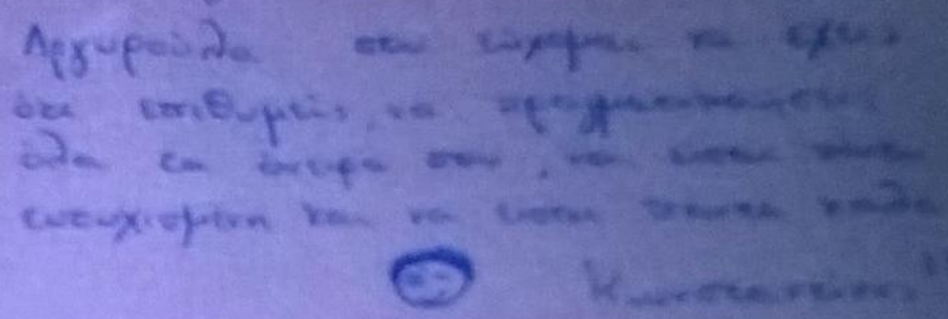 Αργυρούλα σου εύχομαι να έχεις
ότι επιθυμείς, να πραγματοποιήσεις
όλα τα όνειρα σου, να είσαι πάντα
ευτυχισμένη και να είσαι πάντα καλα
Κωνσταντίνος